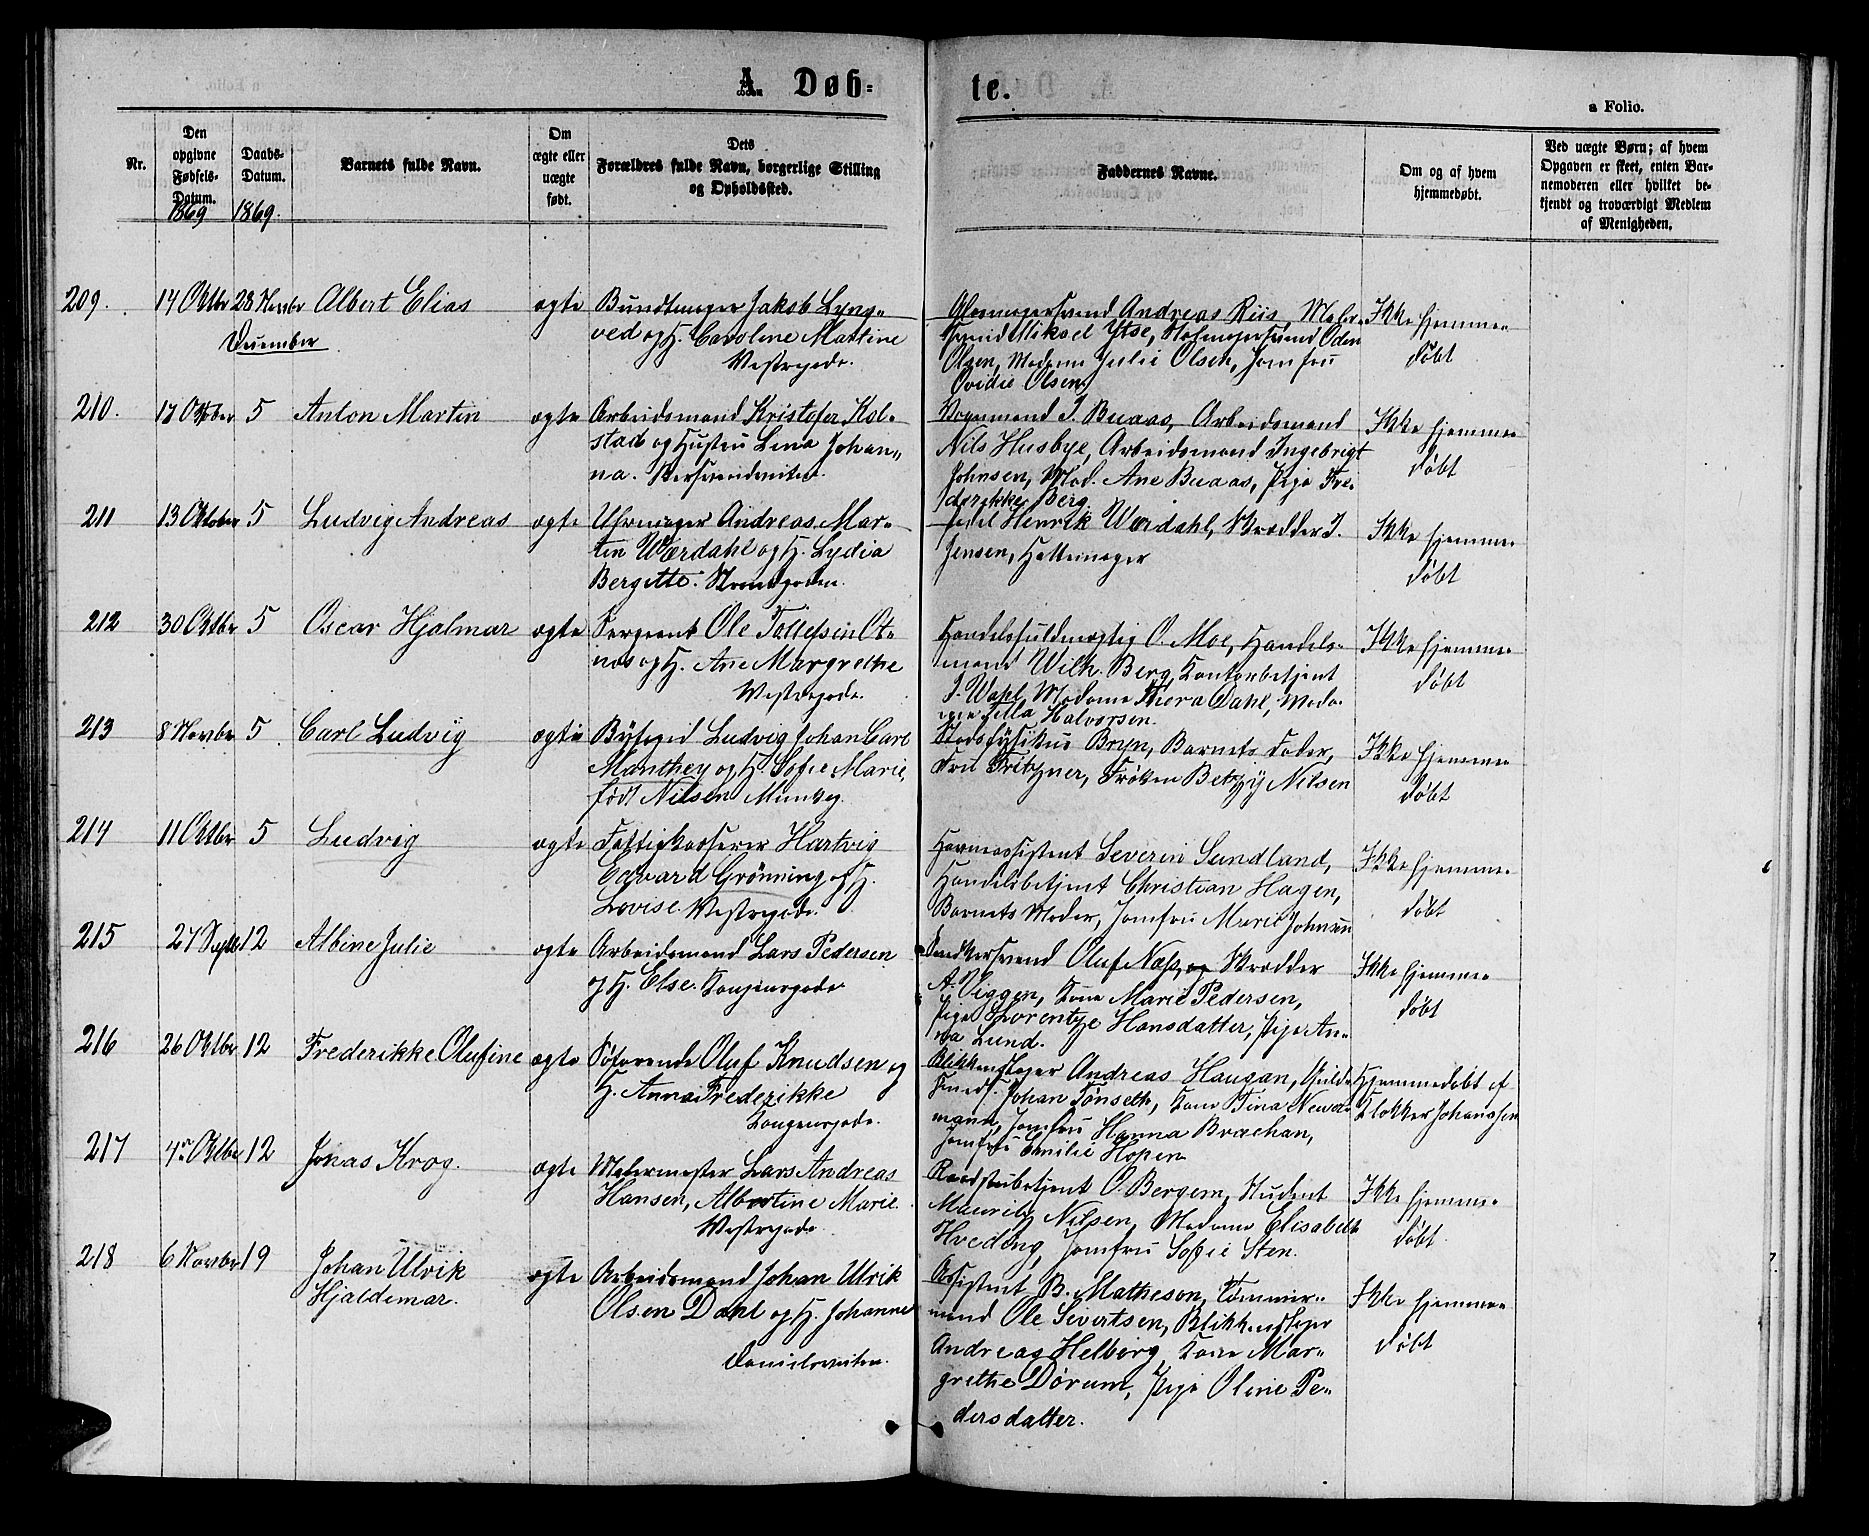 A. Døb=
te.
a Folio.
Nr.
Den opgivne Fødsels-Datum.
Daabs-Datum.
Barnets fulde Navn.
Om ægte eller uægte født.
Dets Forældres fulde Navn, borgerlige Stilling og Opholdssted.
Faddernes Navne.
Om og af hvem hjemmedøbt.
Ved uægte Børn; af hvem Opgaven er skeet, enten Barnemoderen eller hvilket bekjendt og troværdigt Medlem af Menigheden.
1869 1869.
209. 14 Oktbr 28 Novbr Albert Elias ægte Bundtmager Jakob Lyng-
ved og H. Caroline Martine
Vestregade.
Andreas Riis, Maler-
svend Mikael Ytse, Odin
Olsen, Madame Julie Olsen, Jomfru
Ovidie Olsen
Ikke hjemme-
døbt
December
210. 17 Oktober 5 Anton Martin ægte Arbeidsmand Kristofer Kol-
stad og Hustru Lina Johan-
na.
Vognmand I. Buaas, Arbeidsmand
Nils Husbye, Arbeidsmand Ingebrigt
Johnsen, Mad. Ane Buaas, Pige Fre-
derikke Berg
Ikke hjemme-
døbt
211 13 Oktober 5 Ludvig Andreas ægte Uhrmager Andreas Mar-
tin Værdahl og H. Lydia
Bergitte. Strandgaden.
Henrik Værdahl, Skrædder I.
Jensen, Hattemager
Ikke hjemme-
døbt
212 30 Oktbr 5 Oscar Hjalmar ægte Sergeant Ole Tollefsen Ot-
nes og H. Ane Margrethe
Vestregade.
Handelsfuldmægtig O. Moe, Handels-
mand Wilh. Berg, Kontorbetjent
I. Wahl, Madame Thera Dahl, Mada-
me Jilla Halvorsen.
Ikke hjemme-
døbt
213 8 Novbr 5 Carl Ludvig ægte Byfoged Ludvig Johan Carl
Manthey og H. Sofie Marie,
født Nilsen Munkeg.
Stadsfysikus Bryn, Barnets Fader,
Fru Fritzner, Frøken Betzy Nilsen
Ikke hjemme-
døbt
214 11 Oktbr 5 Ludvig ægte Fattigkasserer Hartvig
Edvard Grönning og H.
Lovise. Vestregade.
Havneassistent Severin Sundland,
Handelsbetjent Christian Hagen,
Barnets Moder, Jomfru Marie Johnsen
Ikke hjemme-
døbt
215 27 Septb 12 Albine Julie ægte Arbeidsmand Lars Pedersen
og H. Else. Kongensgade
Snedkersvend Oluf Næss, og Skrædder
A. Viggen, Kone Marie Pedersen,
Pige Lorentze Hansdatter, Pige An-
na Lund.
Ikke hjemme-
døbt
216 26 Oktbr 12 Frederikke Olufine ægte Søfarende Oluf Knudsen og
H. Anna Frederikke
Kongensgade.
Blikkenslager Andreas Haugan, Guld-
smeds. Johan Tönseth, Kone Tina Neuer-
mann, Jomfru Hanna Brachan,
Jomfru Emilie Hopen
Hjemmedøbt af
Klokker Johanssen
217 4de Oktbr 12 Jonas Krog. ægte Malermester Lars Andreas
Hansen, Albertine Marie.
Vestregade.
Raadstubetjent O. Bergem, Student
Mauritz Nilsen, Madame Elisabeth
Hveding, Jomfru Sofie Sten.
Ikke hjemme-
døbt.
218 6 Novbr 19 Johan Ulrik
Hjaldemar.
ægte Arbeidsmand Johan Ulrik
Olsen Dahl og H. Johanne
Danielsveiten.
Assistent B. Matheson, Tömmer-
mand Ole Sivertsen, Blikkenslager
Andreas Helberg, Kone Mar-
grethe Dörum, Pige Oline Pe-
dersdatter.
Ikke hjemme-
døbt